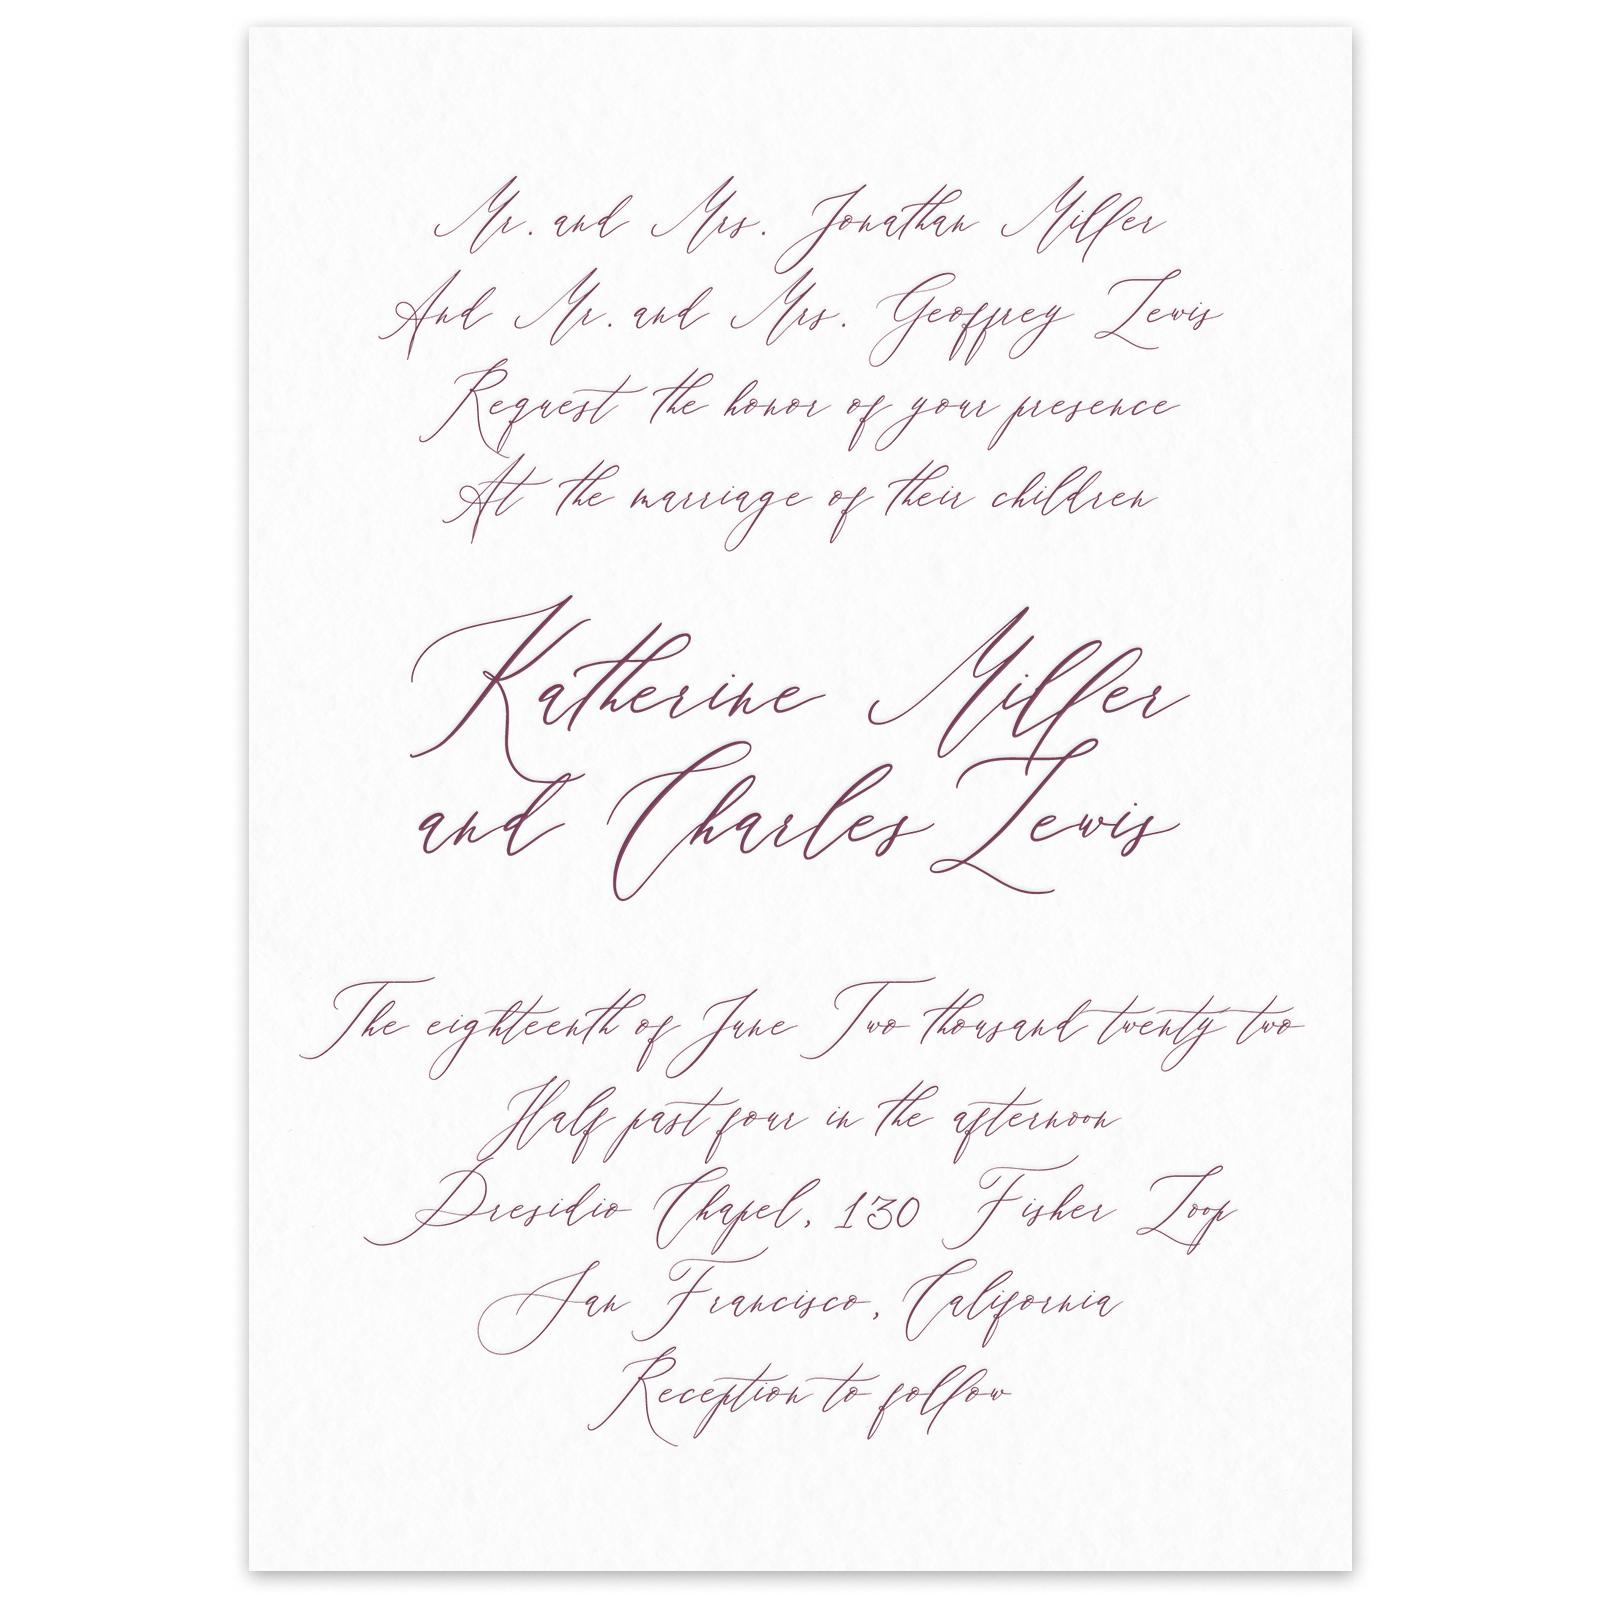 Mr. and Mrs. Jonathan Miller
And Mr. and Mrs. Geoffrey Lewis
Request the honor of your presence
At the marriage of their children
Katherine Miller
and Charles Lewis
The eighteenth of June Two thousand twenty two
Half past four in the afternoon
Presidio Chapel, 130 Fisher Loop
San Francisco, California
Reception to follow